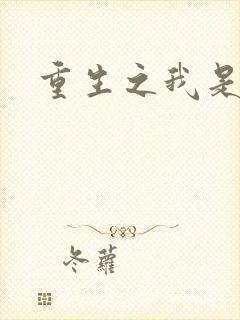 重生之我是
冬蘿